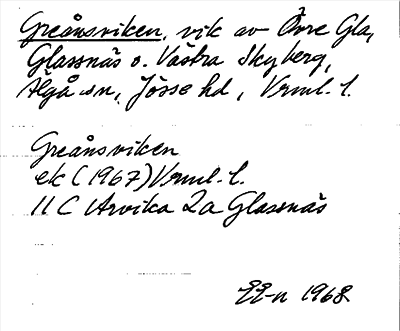 Greånsviken, vik av Övre Gla,
Glassnäs o. Västra Skyberg,
Älgå sn, Jösse hd, Vrml. l.
Greånsviken
ek (1967) Vrml. l.
11 C Arvika 2a Glassnäs
1968